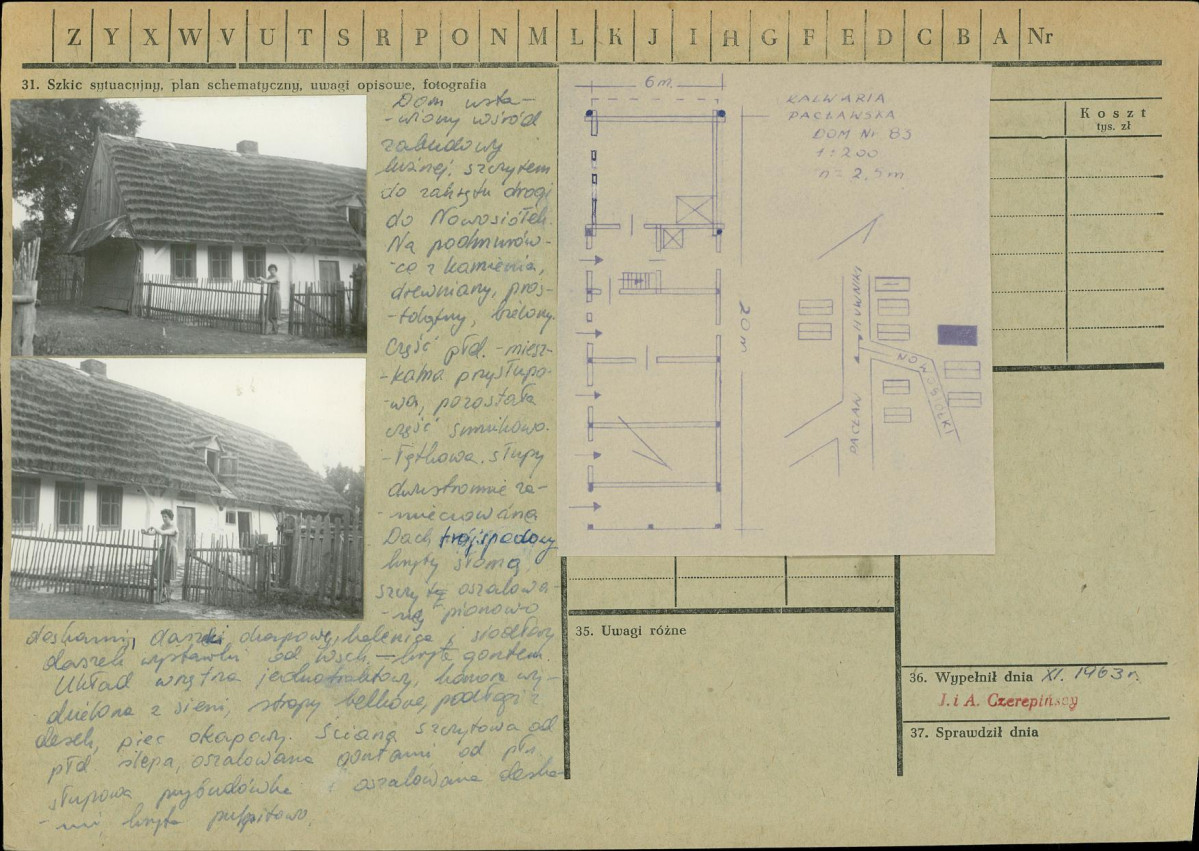 Z Y X W V U T S R P O N M L K J I H G F E D C B A Nr
31. Szkic sytuacyjny, plan schematyczny, uwagi opisowe, fotografia
Dom usta-
-wiony wśród
zabudowy
luźnej, szczytem
do zakrętu drogi
do Nowosiółek.
Na podmurów-
-ce z kamienia,
drewniany, pros-
-tokątny, bielony.
Część płd. - miesz-
-kalna przysłupo-
-wa, pozostała
część sumikowo-
-łątkowa. słupy
dwustronnie za-
Dach trójspadowy
kryty słomą
oszalowa-
-ny pionowo
deskami, daszki okapowy, i siodłowy
daszek wystawki od wsch. - kryte gontem.
Układ wnętrza jednotraktowy, komora wy-
-dzielona z sieni, stropy belkowe, podłogi z
desek, piec okapowy. Ściana szczytowa od
płd ślepa, oszalowana gontami od płn.
słupowa przybudówka oszalowana deska-
-mi kryta pulpitowo.
6 m.
KALWARIA
PACŁAWSKA
DOM Nr 83
1:200
20 m
HUWNIKI
PACŁAW
NOWOSIÓŁKI
Koszt
tys. zł
35. Uwagi różne
36. Wypełnił dnia XI. 1963 r.
J. i A. Czerepińscy
37. Sprawdził dnia